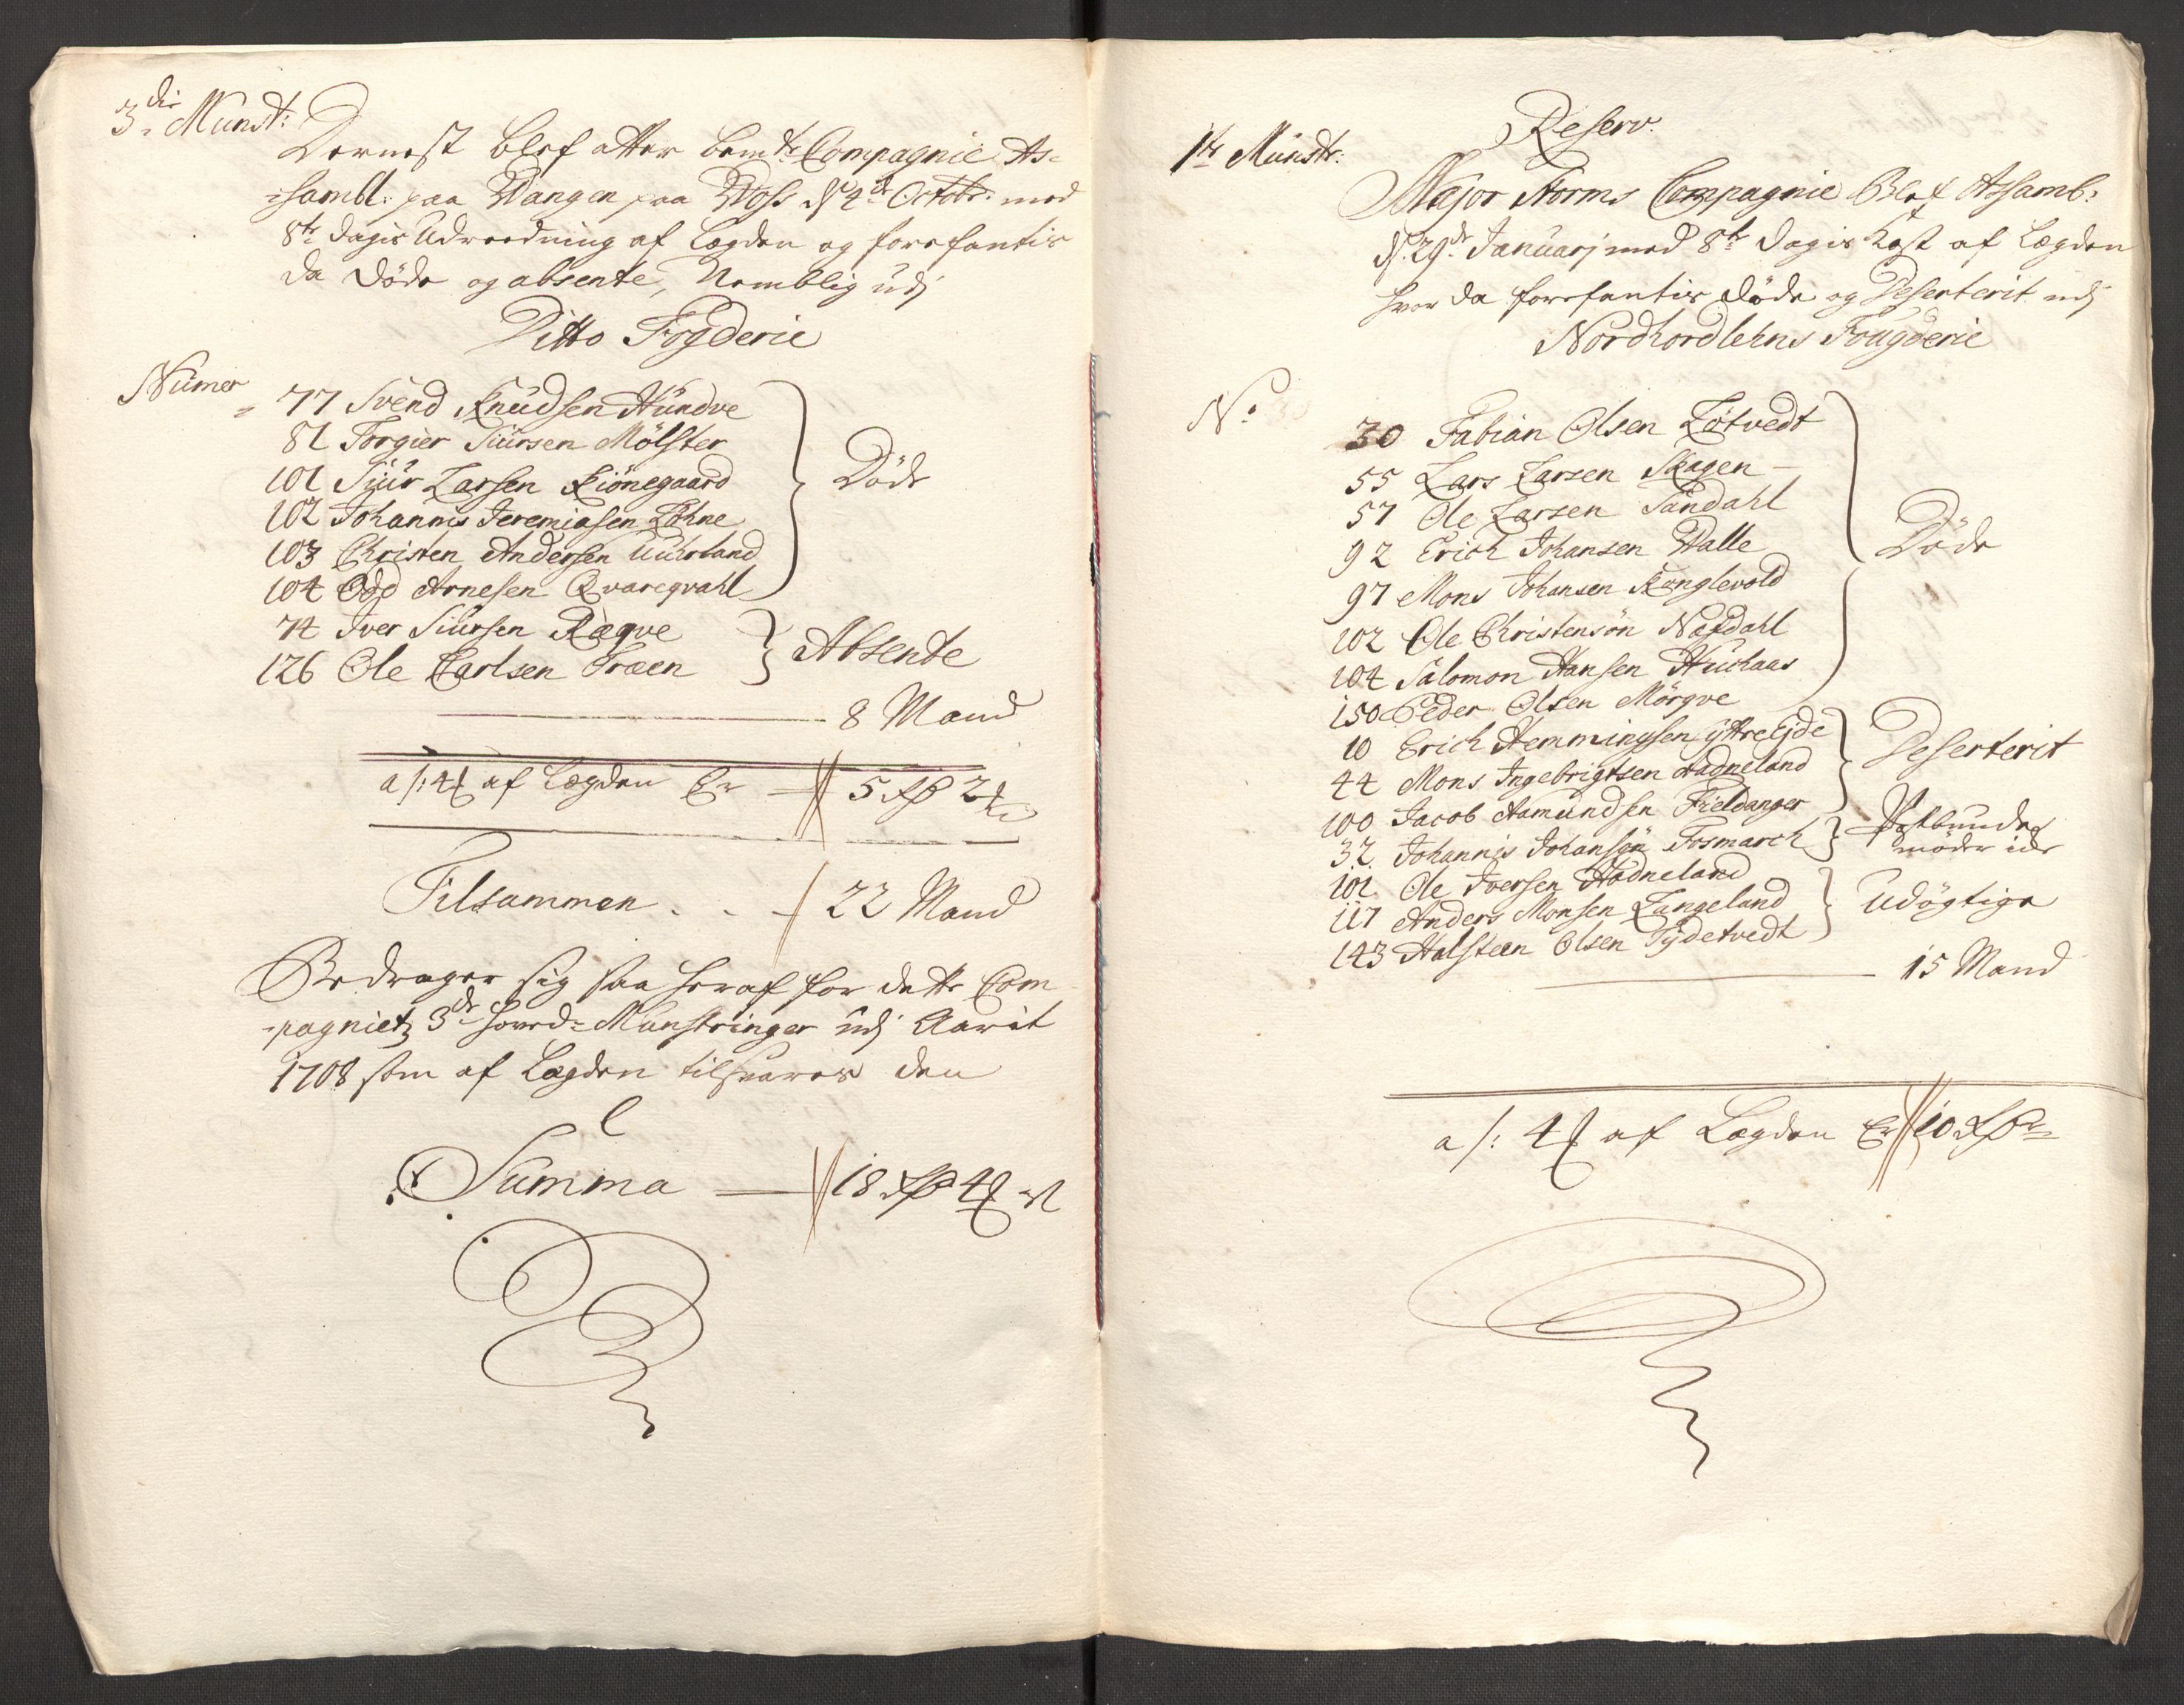 3die Munst:
Dernest blef atter bemte Compagnie As-
-sambl: paa Wangen paa Woss d: 4de Octobr: med
8te dagis Udreedning af Lægden og forefantis
da döde og absente, Nemblig udj
Ditto Fogderie
Numer
77 Svend Knudsen Hundve
81 Torgier Siursen Mölster
101 Siur Larsen Kiönegaard
102 Johannis Jeremiasen Löhne
103 Christen Andersen Uuhrland
104 Odd Arnesen Qvareqvahl
Döde
74 Iver Siursen Rægve
126 Ole Carlsen Træen
Absente
8 Mand
a s: 4 ß af Lægden Er 5 Rdr 2
Tilsammen . . - 22 Mand
Bedrager sig saa heraf for dette Com
-pagnietz 3de hoved-Munstringer udj Aarit
1708 som af Lægden tilsvares den
Summa 18 Rdr 4 ß
Reserv:
1te Munstr:
Major Storms Compagnie Blef Assamb:
d: 29de Januarj med 8te dagis Kost af Lægden
hvor da forefantis döde og Deserterit udj
Nordhordlehns Fougderie
No
30 Fabian Olsen Lötvedt
55 Lars Larsen Skagen
57 Ole Larsen Sandahl
92 Erich Johansen Walle
97 Mons Johansen Kanglevold
102 Ole Christensön Nasdahl
104 Salomon Hansen Huchaas
150 Peder Olsen Mörgve
Döde
10 Erich Hemmingsen Yttre Ejde
44 Mons Ingebrigtsen Aadneland
100 Jacob Aamundsen Fieldanger
Deserterit
32 Johannis Johansön Fosmarch
Postbunde
möder icke
101 Ole Iversen Hodneland
117 Anders Monsen Langeland
143 Halsteen Olsen Tydetvedt
Udögtige
15 Mand
a s: 4 ß af Lægden Er 10 Rdr